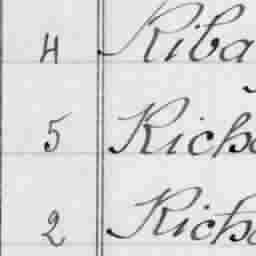 4 Riba
5 Richa
2 Rich